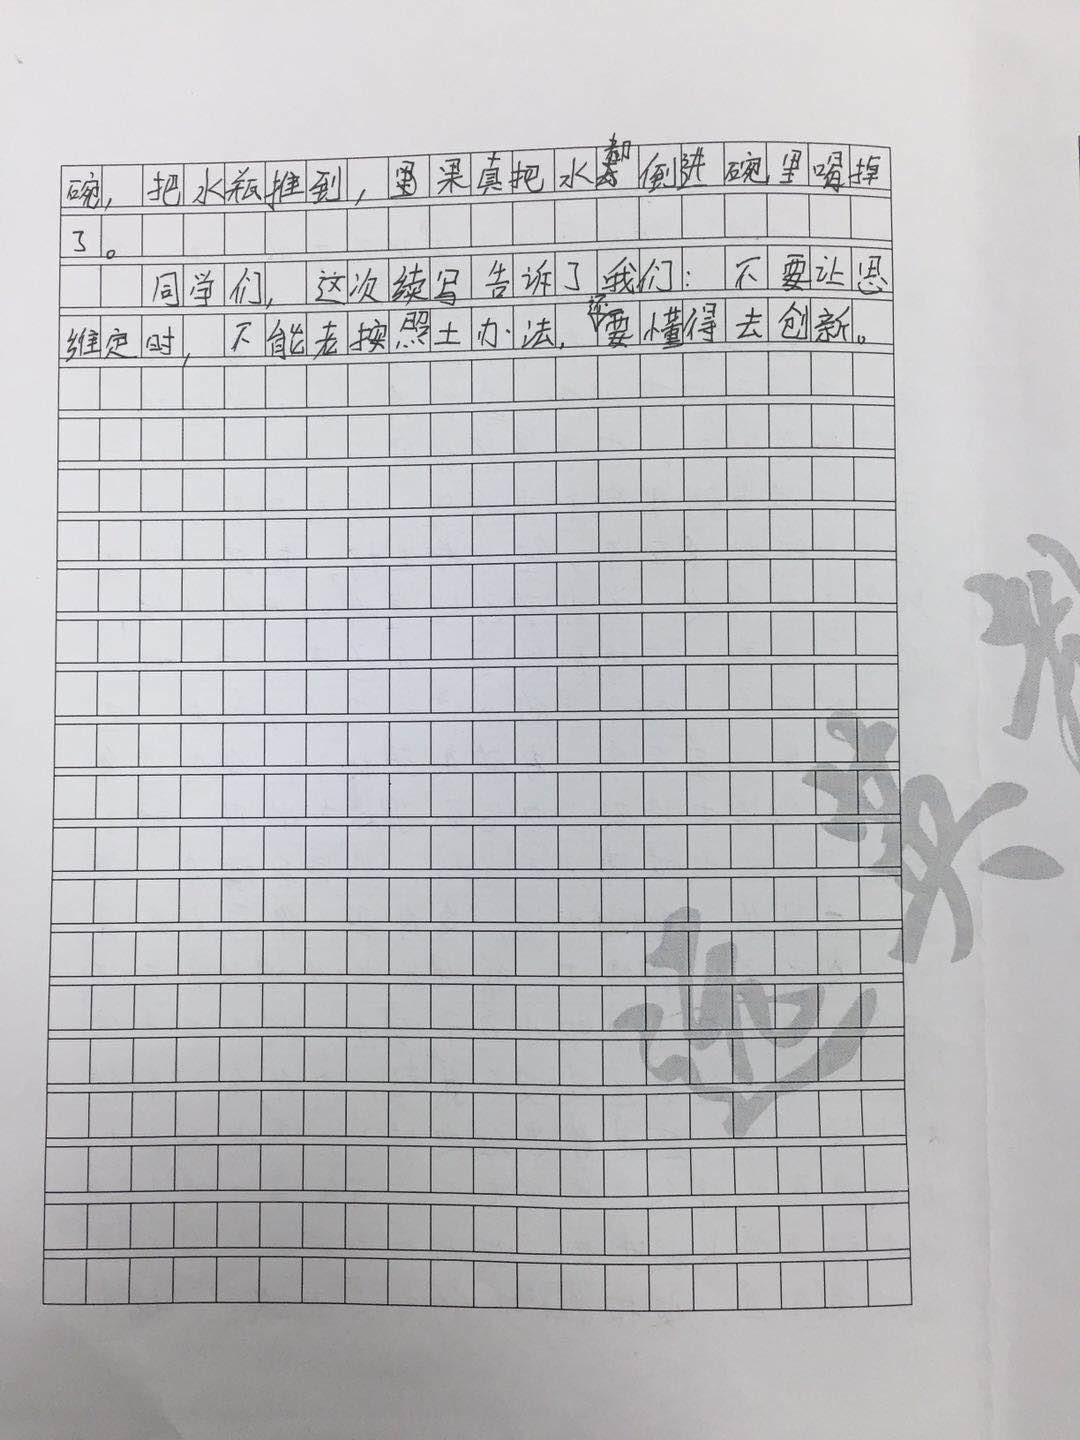 碗，把水瓶推到，果真把水都倒进碗里喝掉
了。
同学们，这次续写告诉了我们：不要让思
维定时，不能老按照土办法，还要懂得去创新。